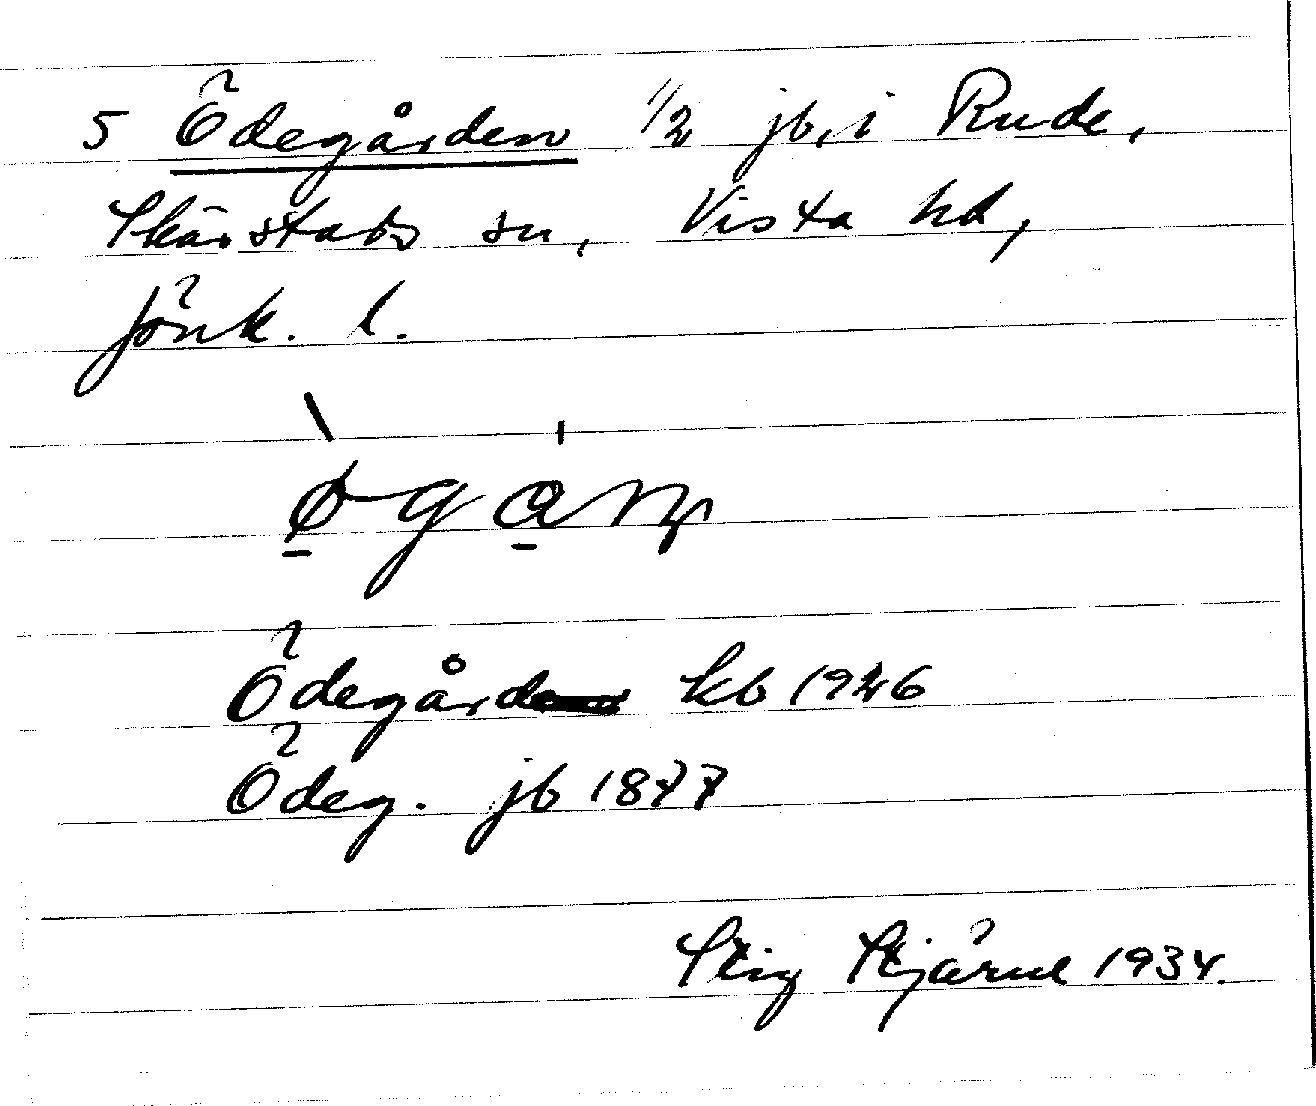 5 Ödegården 1/2 jb, i Rude,
Skärstads sn, Vista hd,
Jönk. l.
Ödegård kb 1946
Ödeg. jb 1877
Stig Stjärne 1934.